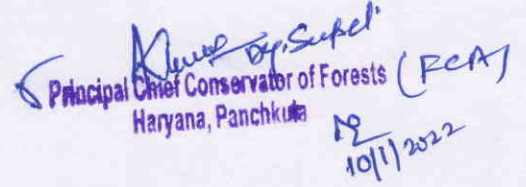 Dy. Supdt.
Principal Chief Conservator of Forests (FCA)
Haryana, Panchkula
10/1/2022